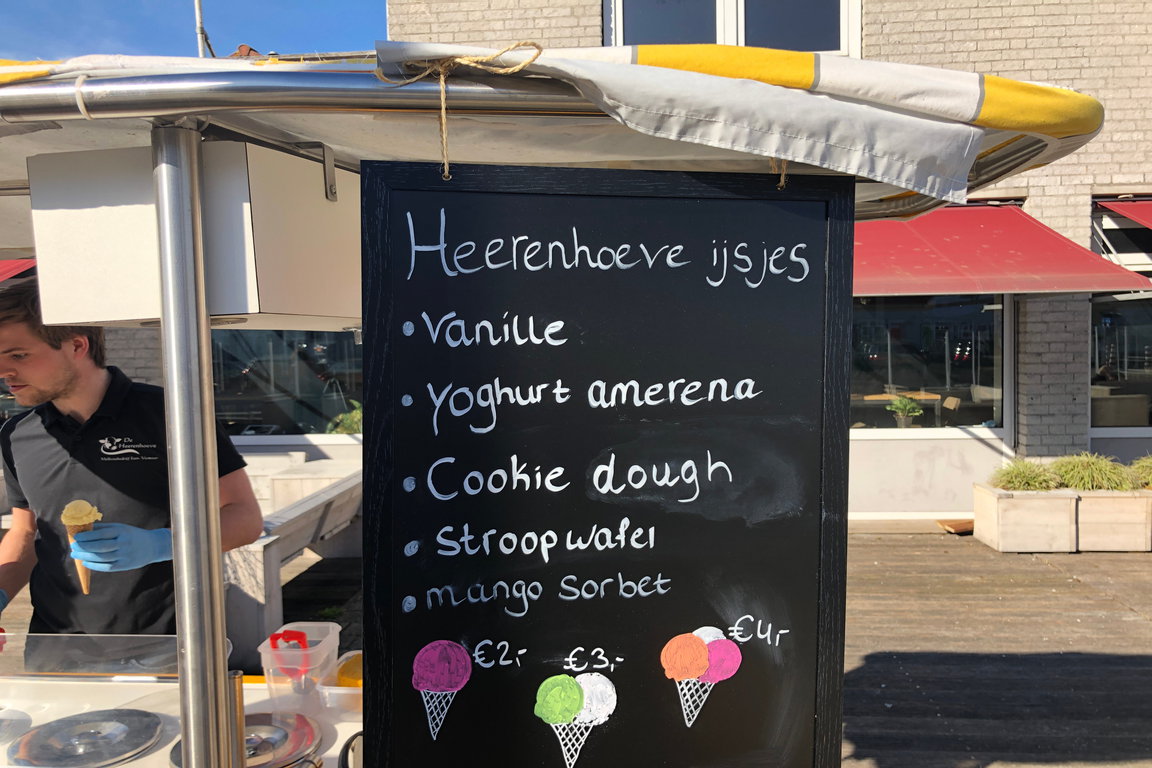 Heerenhoeve ijsjes
• Vanille
• Yoghurt amerena
• Cookie dough
• Stroopwafel
• mango Sorbet
€2,-
€3,-
€4,-
De
Heerenhoeve